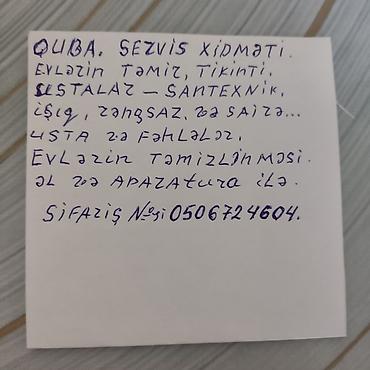 QUBA. SERVİS XİDMƏTİ.
EVLƏRİN TƏMİR, TİKİNTİ.
USTALAR – SANTEXNİK,
İŞIQ, RƏNGSAZ, VƏ SAİRƏ...
USTA VƏ FƏHLƏLƏR,
EVLƏRİN TƏMİZLƏNMƏSİ.
ƏL VƏ APARATURA İLƏ.
SİFARİŞ №Sİ 0506724604.